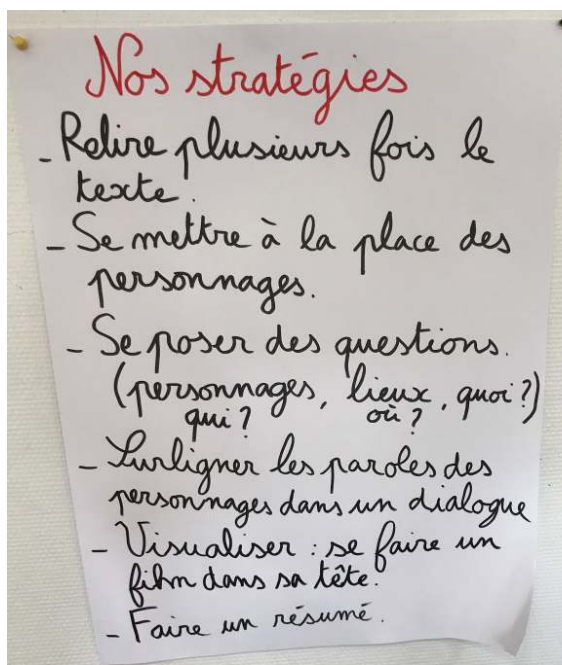 Nos stratégies
- Relire plusieurs fois le
texte.
- Se mettre à la place des
personnages.
- Se poser des questions.
(personnages, lieux, quoi ?)
qui ? où ?
- Surligner les paroles des
personnages dans un dialogue
- Visualiser : se faire un
film dans sa tête.
- Faire un résumé.